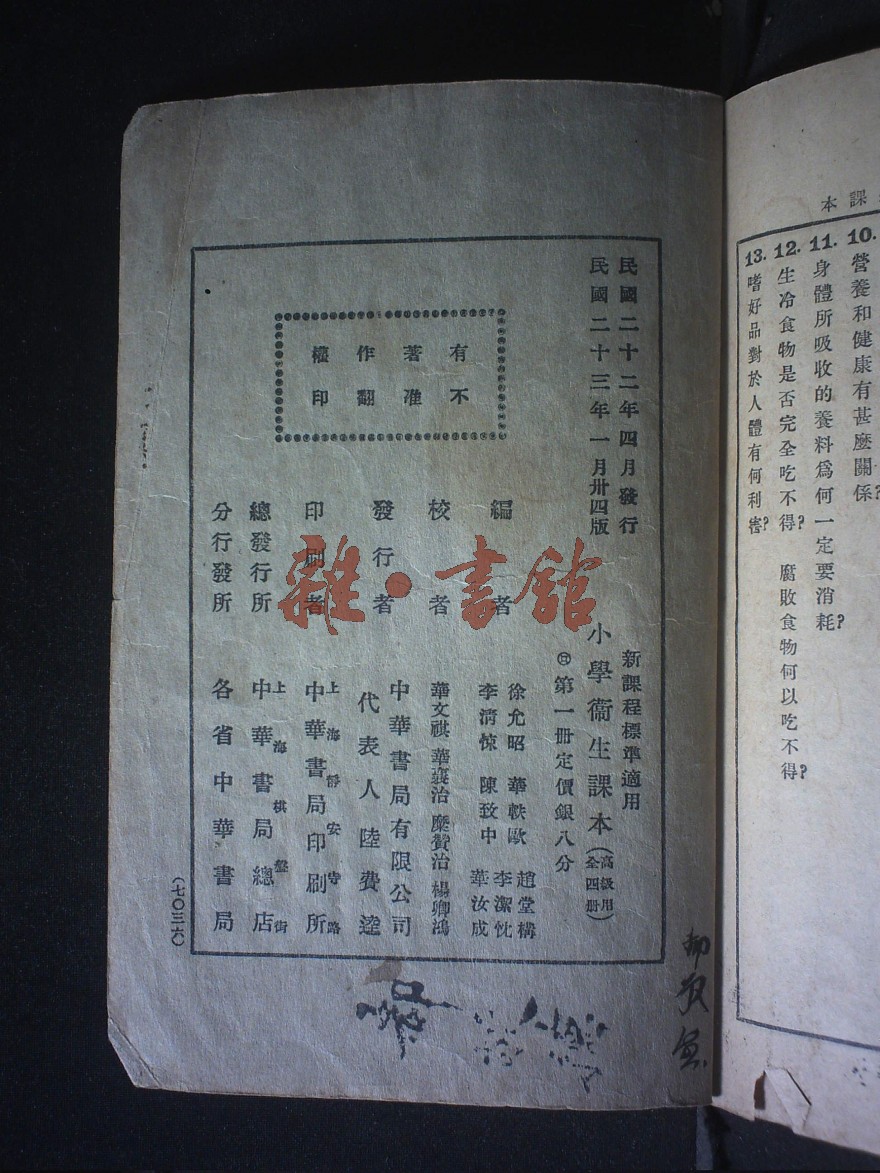 課本
10. 營養和健康有甚麼關係?
11. 身體所吸收的養料爲何一定要消耗?
12. 生冷食物是否完全吃不得? 腐敗食物何以吃不得?
13. 嗜好品對於人體有何利害?
民國二十二年四月發行
民國二十三年一月卅四版
有著作權
不准翻印
新課程標準適用
小學衞生課本(高級用全四册)
第一册定價銀八分
編者
徐允昭 華軼歐 趙堂構
李清悚 陳致中 李潔忱
華汝成
校者
華文祺 華襄治 糜贊治 楊卿鴻
發行者
中華書局有限公司
代表人陸費逵
印刷者
上海靜安寺路
中華書局印刷所
總發行所
上海棋盤街
中華書局總店
分發行所
各省中華書局
(七〇三六)
雜·書館